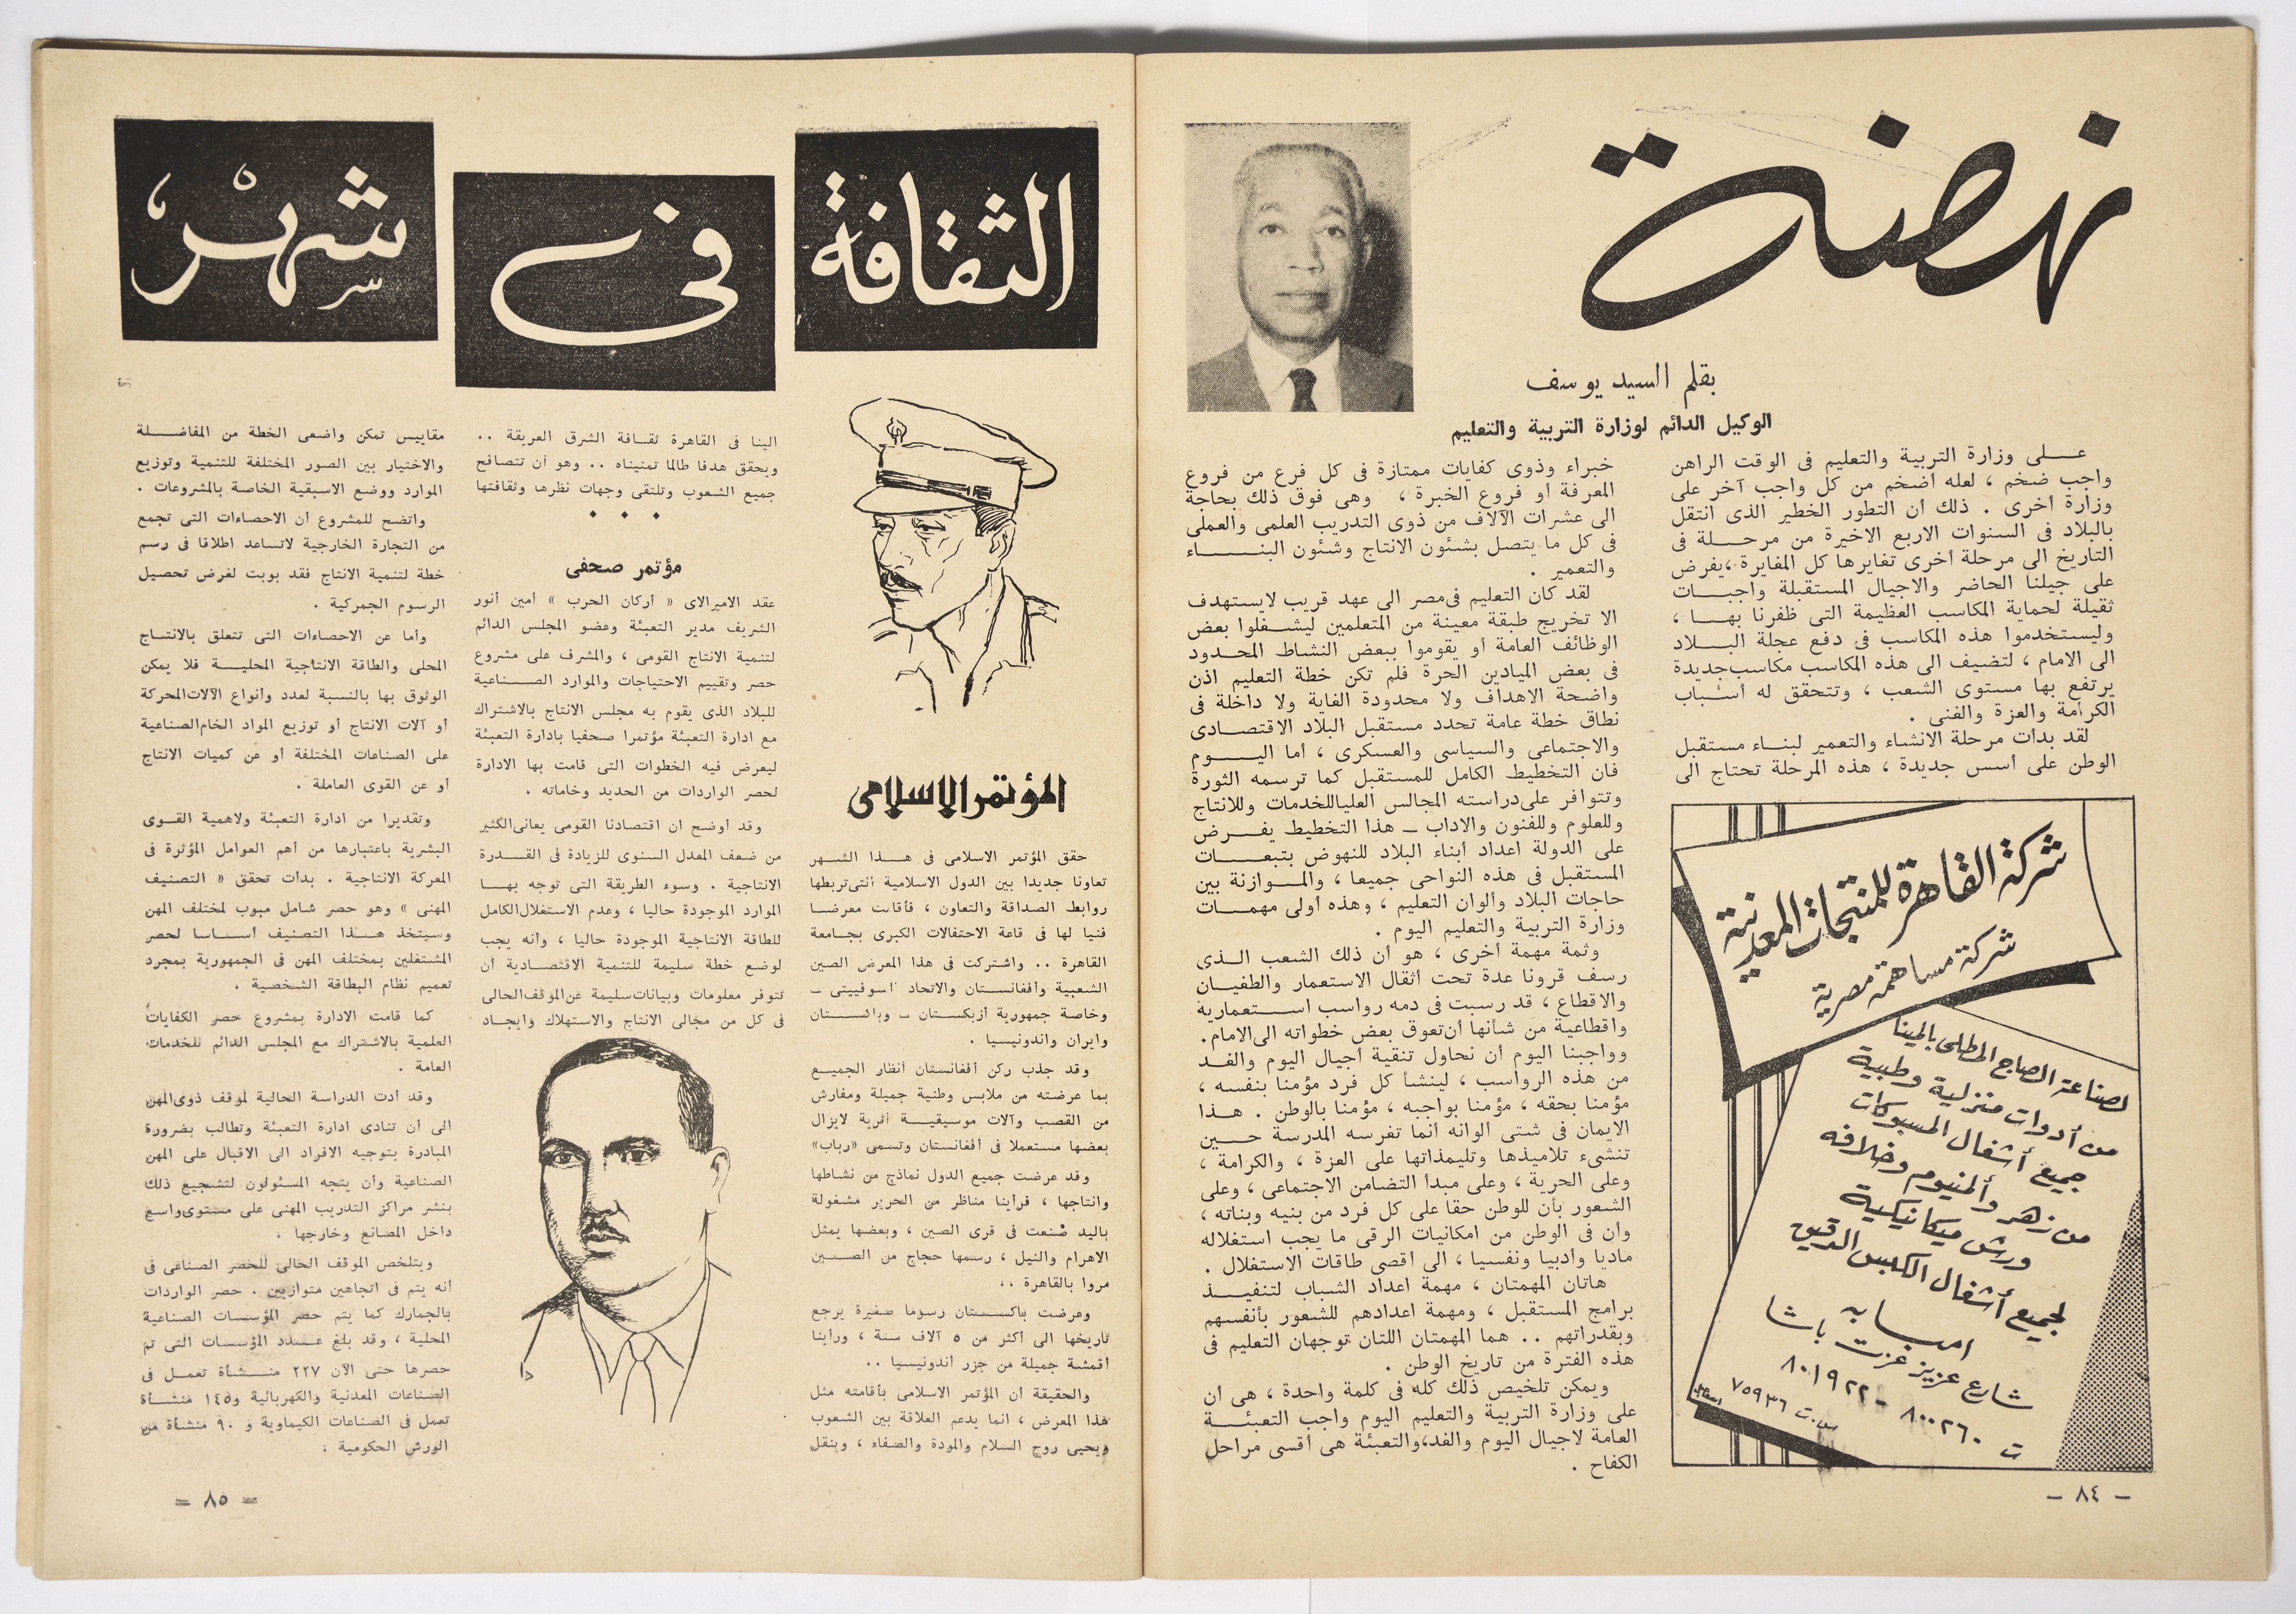 نهضة
بقلم السيد يوسف
الوكيل الدائم لوزارة التربية والتعليم
عــلى وزارة التربية والتعليم فى الوقت الراهن
واجب ضخم ، لعله أضخم من كل واجب آخر على
وزارة أخرى . ذلك أن التطور الخطير الذى انتقل
بالبلاد فى السنوات الاربع الاخيرة من مرحــلة فى
التاريخ الى مرحلة أخرى تغايرها كل المغايرة ،يفرض
على جيلنا الحاضر والاجيال المستقبلة واجبــات
ثقيلة لحماية المكاسب العظيمة التى ظفرنا بهــا ،
وليستخدموا هذه المكاسب فى دفع عجلة البــلاد
الى الامام ، لتضيف الى هذه المكاسب مكاسب جديدة
يرتفع بها مستوى الشعب ، وتتحقق له أسـباب
الكرامة والعزة والغنى .
لقد بدأت مرحلة الانشاء والتعمير لبنـاء مستقبل
الوطن على أسس جديدة ، هذه المرحلة تحتاج الى
شركة القاهرة للمنتجات المعدنية
شركة مساهمة مصرية
لصناعة الصاج المطلى بالمينا
من أدوات منزلية وطبية
جميع أشغال المسبوكات
من زهر وألمنيوم وخلافه
ورش ميكانيكية
لجميع أشغال الكبس الدقيق
امبـابه
شارع عزيز عزت باشا
ت ٨٠٠٢٦٠ - ٨٠١٩٢٢
س.ت ٧٥٩٣٦
- ٨٤ -
خبراء وذوى كفايات ممتازة فى كل فرع من فروع
المعرفة أو فروع الخبرة ، وهى فوق ذلك بحاجة
الى عشرات الآلاف من ذوى التدريب العلمى والعملى
فى كل ما يتصل بشئون الانتاج وشئون البنــــاء
والتعمير .
لقد كان التعليم فى مصر الى عهد قريب لايستهدف
الا تخريج طبقة معينة من المتعلمين ليشـغلوا بعض
الوظائف العامة أو يقوموا ببعض النشاط المحـدود
فى بعض الميادين الحرة فلم تكن خطة التعليم اذن
واضحة الاهداف ولا محدودة الغاية ولا داخلة فى
نطاق خطة عامة تحدد مستقبل البلاد الاقتصـادى
والاجتماعى والسياسى والعسكرى ، أما اليــــوم
فان التخطيط الكامل للمستقبل كما ترسمه الثورة
وتتوافر على دراسته المجالس العليا للخدمات وللانتاج
وللعلوم وللفنون والاداب ــ هذا التخطيط يفــرض
على الدولة اعداد أبناء البلاد للنهوض بتبعــــات
المستقبل فى هذه النواحى جميعا ، والمــوازنة بين
حاجات البلاد وألوان التعليم ، وهذه أولى مهمــات
وزارة التربية والتعليم اليوم .
وثمة مهمة أخرى ، هو أن ذلك الشعب الــذى
رسف قرونا عدة تحت أثقال الاستعمار والطغيــان
والاقطاع ، قد رسبت فى دمه رواسب استــعمارية
واقطاعية من شأنها أن تعوق بعض خطواته الى الامام.
وواجبنا اليوم أن نحاول تنقية أجيال اليوم والغــد
من هذه الرواسب ، لينشأ كل فرد مؤمنا بنفسه ،
مؤمنا بحقه ، مؤمنا بواجبه ، مؤمنا بالوطن . هــذا
الايمان فى شتى ألوانه انما تغرسه المدرسة حــين
تنشىء تلاميذها وتلميذاتها على العزة ، والكرامة ،
وعلى الحرية ، وعلى مبدأ التضامن الاجتماعى ، وعلى
الشعور بأن للوطن حقا على كل فرد من بنيه وبناته ،
وأن فى الوطن من امكانيات الرقى ما يجب استغلاله
ماديا وأدبيا ونفسيا ، الى أقصى طاقات الاستغلال .
هاتان المهمتان ، مهمة اعداد الشباب لتنفيــذ
برامج المستقبل ، ومهمة اعدادهم للشعور بأنفسهم
وبقدراتهم .. هما المهمتان اللتان توجهان التعليم فى
هذه الفترة من تاريخ الوطن .
ويمكن تلخيص ذلك كله فى كلمة واحدة ، هى أن
على وزارة التربية والتعليم اليوم واجب التعبئــة
العامة لاجيال اليوم والغد،والتعبئة هى أقسى مراحل
الكفاح .
الثقافة
فى
شهر
المؤتمر الاسلامى
حقق المؤتمر الاسلامى فى هــذا الشـهر
تعاونا جديدا بين الدول الاسلامية التى تربطها
روابط الصداقة والتعاون ، فأقامت معرضــا
فنيا لها فى قاعة الاحتفالات الكبرى بجـامعة
القاهرة .. واشتركت فى هذا المعرض الصين
الشعبية وأفغانستـان والاتحاد السوفييتى ــ
وخاصة جمهورية أزبكستان ــ وباكستــان
وايران واندونيسيا .
وقد جذب ركن أفغانستان أنظار الجميـع
بما عرضته من ملابس وطنية جميلة ومفارش
من القصب وآلات موسيقيــة أثرية لايزال
بعضها مستعملا فى أفغانستان وتسمى «رباب»
وقد عرضت جميع الدول نماذج من نشاطها
وانتاجها ، فرأينا مناظر من الحرير مشغولة
باليد صنعت فى قرى الصين ، وبعضها يمثل
الاهرام والنيل ، رسمها حجاج من الصــين
مروا بالقاهرة ..
وعرضت باكستان رسوما صغيرة يرجع
تاريخها الى أكثر من ٥ آلاف سنة ، ورأينا
أقمشة جميلة من جزر أندونيسيا ..
والحقيقة أن المؤتمر الاسلامى بأقامته مثل
هذا المعرض ، انما يدعم العلاقة بين الشعوب
ويحيى روح السلام والمودة والصفاء ، وينقل
الينا فى القاهرة ثقـافة الشرق العريقة ..
ويحقق هدفا طالما تمنيناه .. وهو أن تتصافح
جميع الشعوب وتلتقى وجهات نظرها وثقافتها
مؤتمر صحفى
عقد الاميرالاى « أركان الحرب » أمين أنور
الشريف مدير التعبئة وعضو المجلس الدائم
لتنمية الانتاج القومى ، والمشرف على مشروع
حصر وتقييم الاحتياجات والموارد الصــناعية
للبلاد الذى يقوم به مجلس الانتاج بالاشتراك
مع ادارة التعبئة مؤتمرا صحفيا بادارة التعبئة
ليعرض فيه الخطوات التى قامت بها الادارة
لحصر الواردات من الحديد وخاماته .
وقد أوضح ان اقتصادنا القومى يعانى الكثير
من ضعف المعدل السنوى للزيادة فى القــدرة
الانتاجية . وسوء الطريقة التى توجه بهــا
الموارد الموجودة حاليا ، وعدم الاستغلال الكامل
للطاقة الانتاجية الموجودة حاليا ، وأنه يجب
لوضع خطة سليمة للتنمية الاقتصـادية أن
تتوفر معلومات وبيانات سليمة عن الموقف الحالى
فى كل من مجالى الانتاج والاستهلاك وايجـاد
مقاييس تمكن واضعى الخطة من المفاضــلة
والاختيار بين الصور المختلفة للتنمية وتوزيع
الموارد ووضع الاسبقية الخاصة بالمشروعات .
واتضح للمشروع أن الاحصاءات التى تجمع
من التجارة الخارجية لاتساعد اطلاقا فى رسم
خطة لتنمية الانتاج فقد بوبت لغرض تحصيل
الرسوم الجمركية .
وأما عن الاحصاءات التى تتعلق بالانتــاج
المحلى والطاقة الانتاجية المحليــة فلا يمكن
الوثوق بها بالنسبة لعدد وأنواع الآلات المحركة
أو آلات الانتاج أو توزيع المواد الخام الصناعية
على الصناعات المختلفة أو عن كميات الانتاج
أو عن القوى العاملة .
وتقديرا من ادارة التعبئة ولاهمية القــوى
البشرية باعتبارها من أهم العوامل المؤثرة فى
المعركة الانتاجية . بدأت تحقق « التصنيف
المهنى » وهو حصر شامل مبوب لمختلف المهن
وسيتخذ هــذا التصنيف أســاسا لحصر
المشتغلين بمختلف المهن فى الجمهورية بمجرد
تعميم نظام البطاقة الشخصية .
كما قامت الادارة بمشروع حصر الكفايات
العلمية بالاشتراك مع المجلس الدائم للخدمات
العامة .
وقد أدت الدراسة الحالية لموقف ذوى المهن
الى أن تنادى ادارة التعبئة وتطالب بضرورة
المبادرة بتوجيه الافراد الى الاقبال على المهن
الصناعية وأن يتجه المسئولون لتشجيع ذلك
بنشر مراكز التدريب المهنى على مستوى واسع
داخل المصانع وخارجها .
ويتلخص الموقف الحالى للحصر الصناعى فى
أنه يتم فى اتجاهين متوازيين . حصر الواردات
بالجمارك كما يتم حصر المؤسسات الصناعية
المحلية ، وقد بلغ عــدد المؤسسات التى تم
حصرها حتى الآن ٢٢٧ منــشأة تعمــل فى
الصناعات المعدنية والكهربائية و١٤٥ منشــأة
تعمل فى الصناعات الكيماوية و ٩٠ منشأة من
الورش الحكومية .
- ٨٥ -